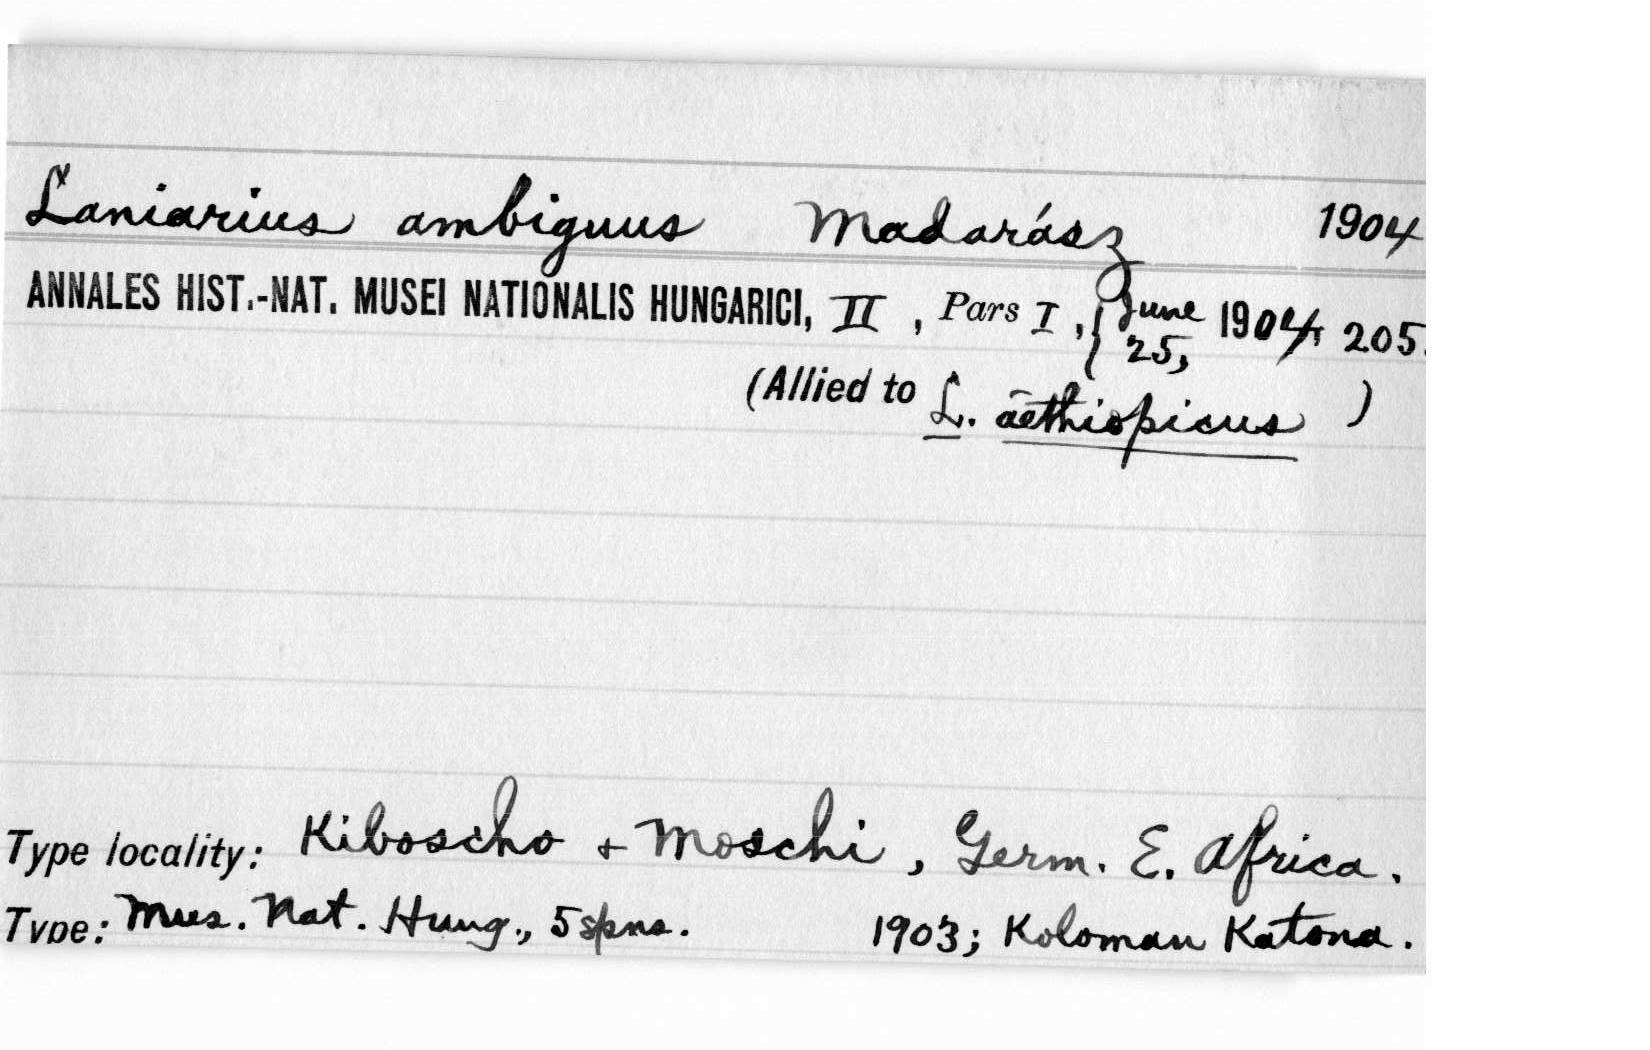 Laniarius ambiguus Madarász 1904
ANNALES HIST.-NAT. MUSEI NATIONALIS HUNGARICI, II, Pars I, { June 25, 1904, 205.
(Allied to L. āēthiopicus )
Type locality: Kiboscho + Moschi, Germ. E. Africa.
Type: Mus. Nat. Hung., 5 spns. 1903; Koloman Katona.